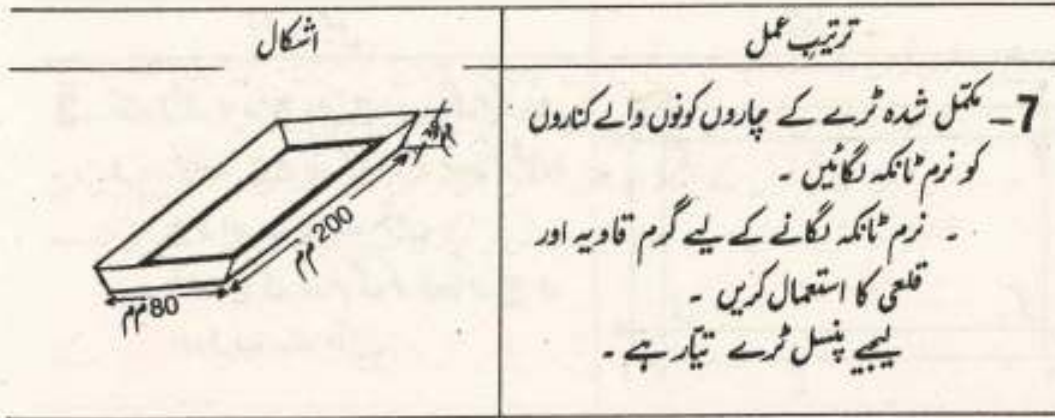 ترتیبِ عمل
7۔ مکمل شدہ ٹرے کے چاروں کونوں والے کناروں
کو نرم ٹانکہ لگائیں ۔
۔ نرم ٹانکہ لگانے کے لیے گرم قاویہ اور
قلعی کا استعمال کریں ۔
لیجیے پنسل ٹرے تیار ہے ۔
اشکال
200 مم
80 مم